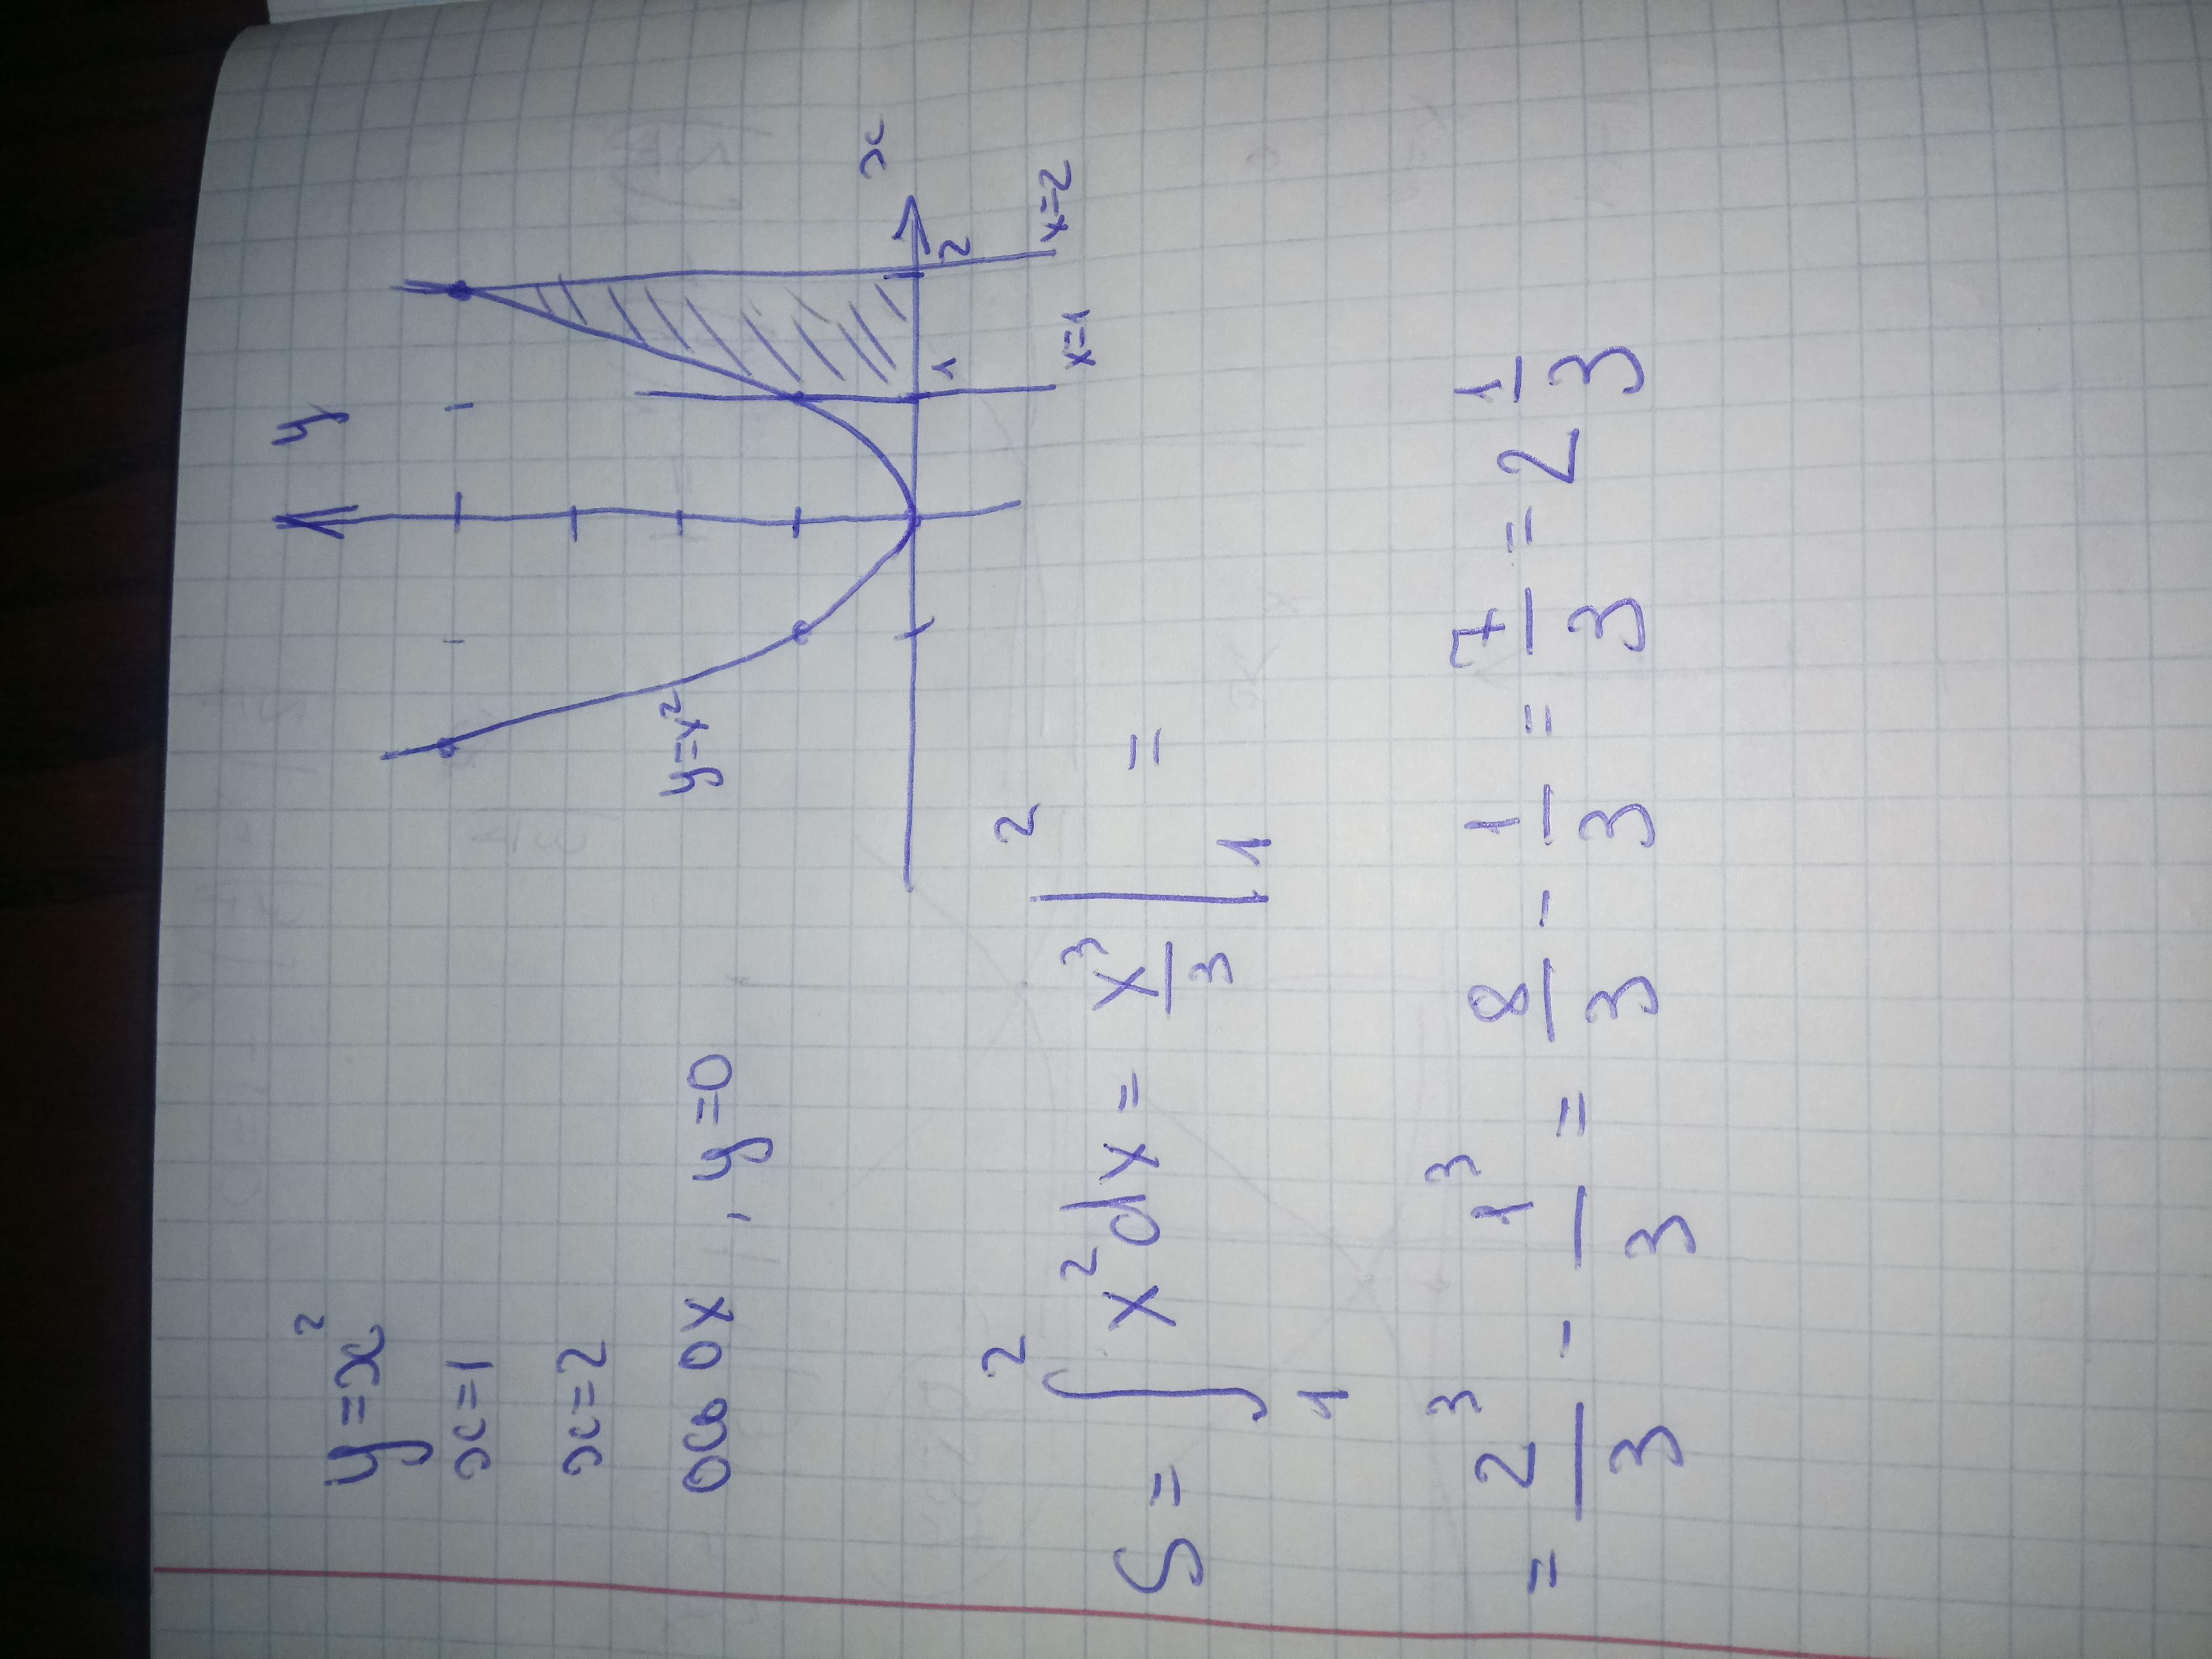 y=x²
x=1
x=2
ось OX, y=0
y
x
1
2
x=1
x=2
y=x²
S = ∫₁² x²dx = x³/3 |₁² =
= 2³/3 - 1³/3 = 8/3 - 1/3 = 7/3 = 2 1/3